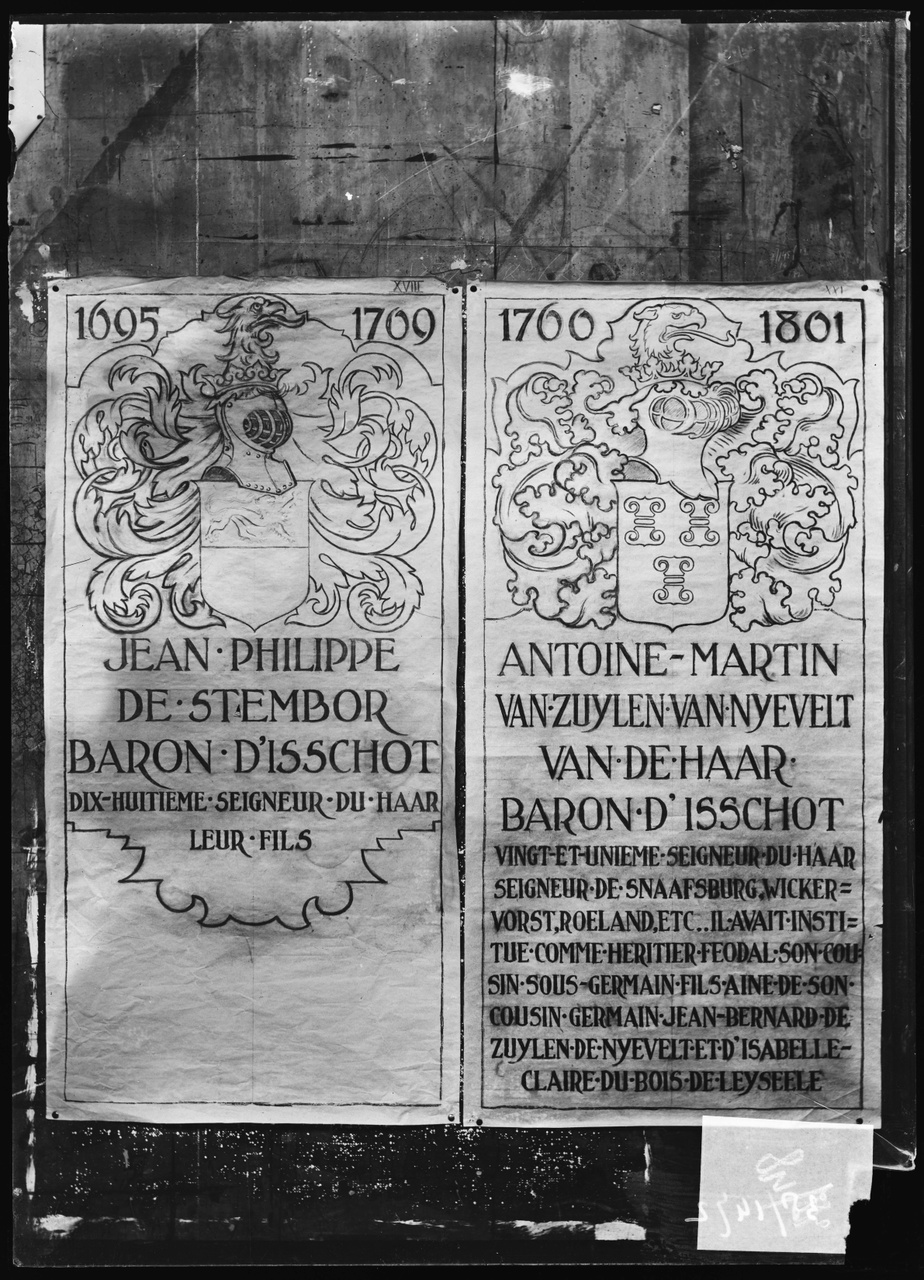 XVIII
1695 1709
JEAN·PHILIPPE
DE·STEMBOR
BARON·D'ISSCHOT
DIX-HUITIEME·SEIGNEUR·DU·HAAR
LEUR·FILS
XXI
1760 1801
ANTOINE-MARTIN
VAN·ZUYLEN·VAN·NYEVELT
VAN·DE·HAAR·
BARON·D'ISSCHOT
VINGT-ET-UNIEME·SEIGNEUR·DU·HAAR
SEIGNEUR·DE·SNAAFSBURG,WICKER=
VORST,ROELAND,ETC..IL·AVAIT·INSTI=
TUE·COMME·HERITIER·FEODAL·SON·COU-
SIN·SOUS-GERMAIN·FILS·AINE·DE·SON·
COUSIN·GERMAIN·JEAN-BERNARD·DE
ZUYLEN·DE·NYEVELT·ET·D'ISABELLE-
CLAIRE·DU·BOIS·DE·LEYSEELE